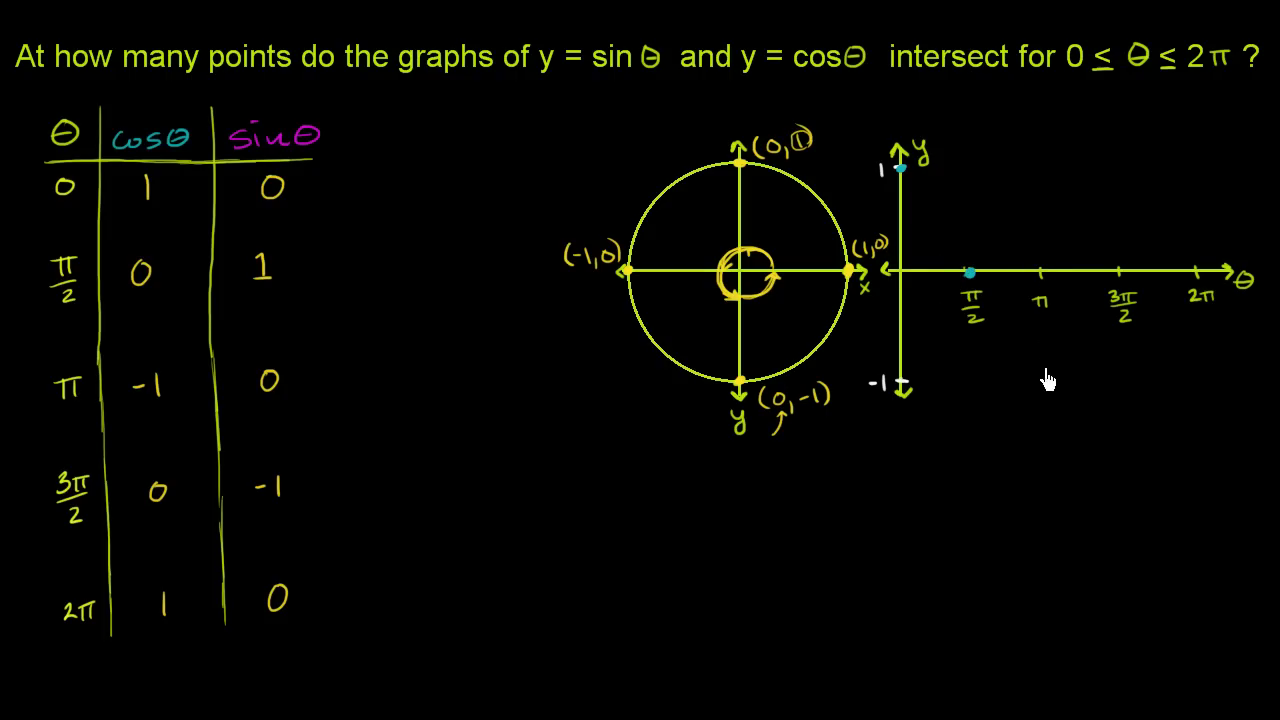 At how many points do the graphs of y = sin θ and y = cosθ intersect for 0 ≤ θ ≤ 2π ?
θ cosθ sinθ
0 1 0
π/2 0 1
π -1 0
3π/2 0 -1
2π 1 0
(0,1)
(-1,0)
(1,0)
x
(0,-1)
y
y
1
-1
π/2 π 3π/2 2π θ